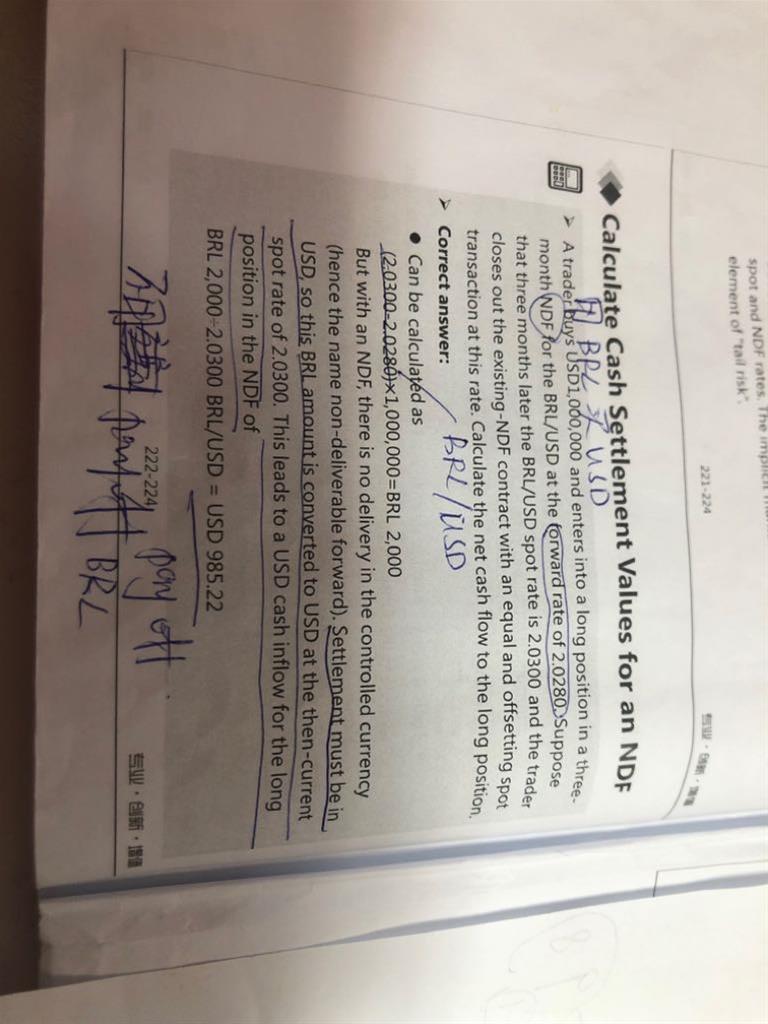 spot and NDF rates. The implicit
element of "tail risk".
221-224
专业 · 创新 · 增值
Calculate Cash Settlement Values for an NDF
用 BRL 买 USD
➢ A trader buys USD1,000,000 and enters into a long position in a three-
month NDF for the BRL/USD at the forward rate of 2.0280. Suppose
that three months later the BRL/USD spot rate is 2.0300 and the trader
closes out the existing-NDF contract with an equal and offsetting spot
transaction at this rate. Calculate the net cash flow to the long position.
➢ Correct answer:
BRL/USD
● Can be calculated as
(2.0300-2.0280)×1,000,000=BRL 2,000
But with an NDF, there is no delivery in the controlled currency
(hence the name non-deliverable forward). Settlement must be in
USD, so this BRL amount is converted to USD at the then-current
spot rate of 2.0300. This leads to a USD cash inflow for the long
position in the NDF of
BRL 2,000÷2.0300 BRL/USD = USD 985.22
222-224
pay off
专业 · 创新 · 增值
pay off BRL